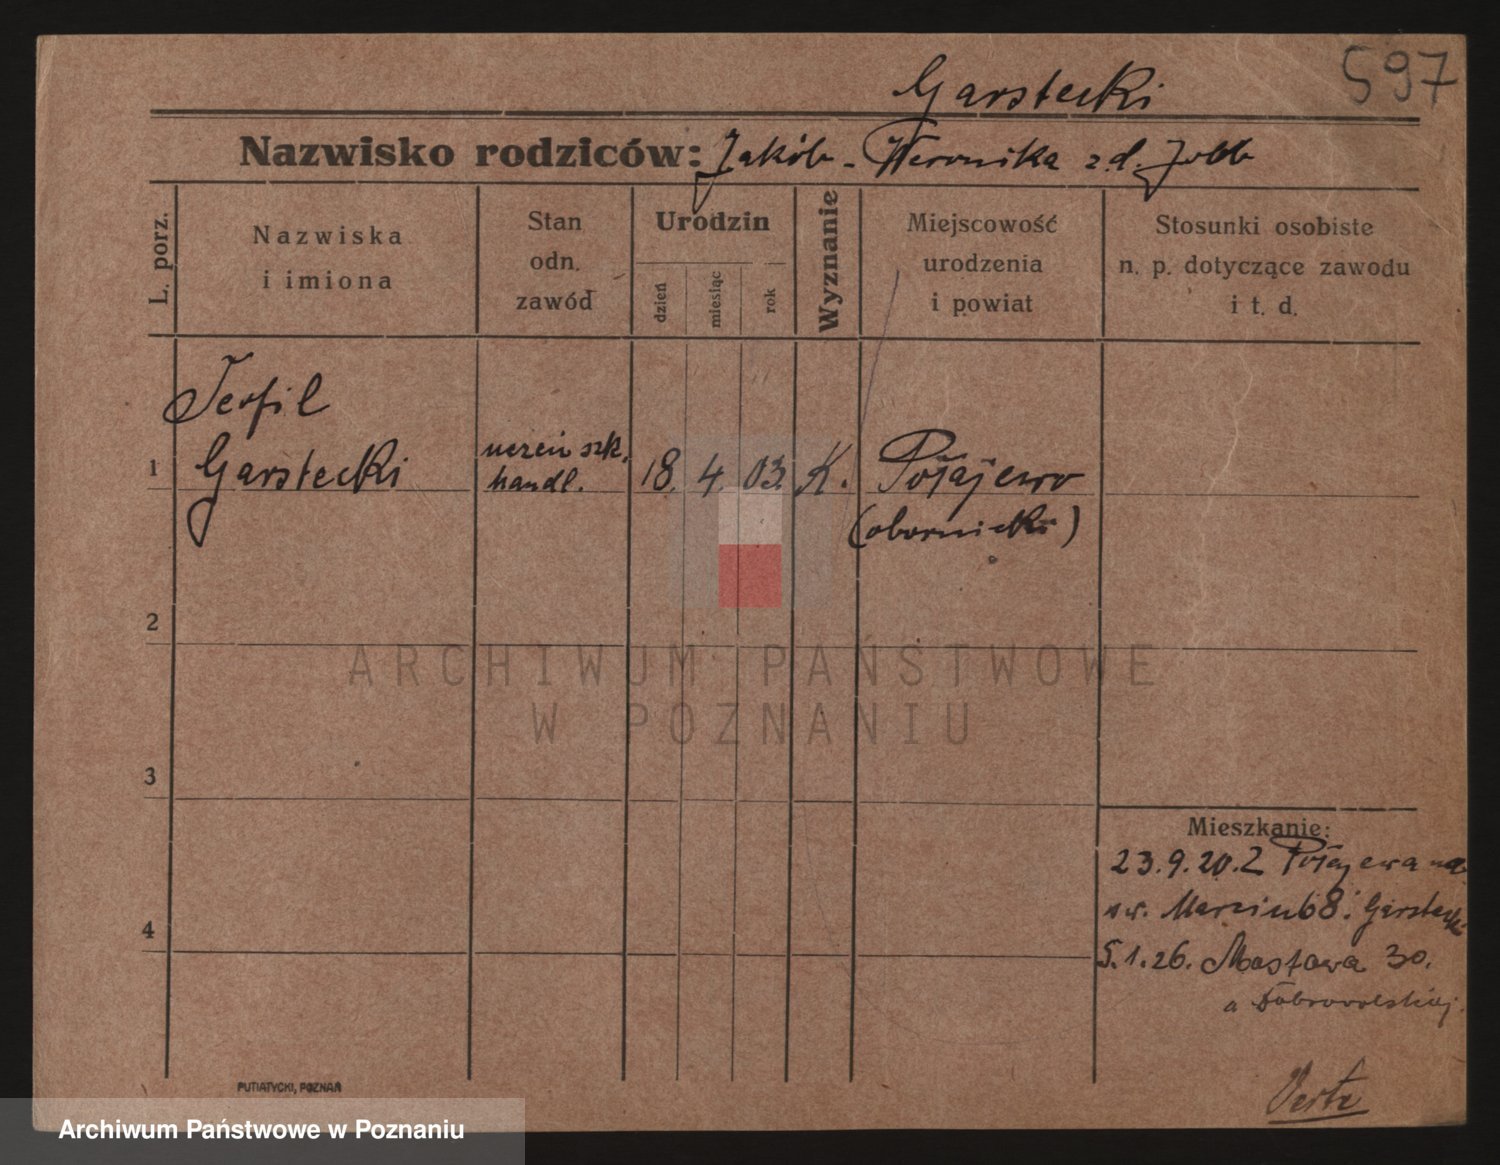 597
Garstecki
Nazwisko rodziców: Jakób - Weronika z d. 
L. porz.
Nazwiska
i imiona
Stan
odn.
zawód
Urodzin
dzień
miesiąc
rok
Wyznanie
Miejscowość
urodzenia
i powiat
Stosunki osobiste
n. p. dotyczące zawodu
i t. d.
Teofil
1 Garstecki
uczeń szk.
handl.
18. 4. 03. K. Połajewo
(obornicki)
2
3
4
ARCHIWUM PAŃSTWOWE
W POZNANIU
Mieszkanie:
23.9.20. Z Połajewa na
św. Marcin 68. Garstecki
5.1.26. Mostowa 30.
a Dobrowolskiej.
Verte
PUTIATYCKI, POZNAŃ
Archiwum Państwowe w Poznaniu